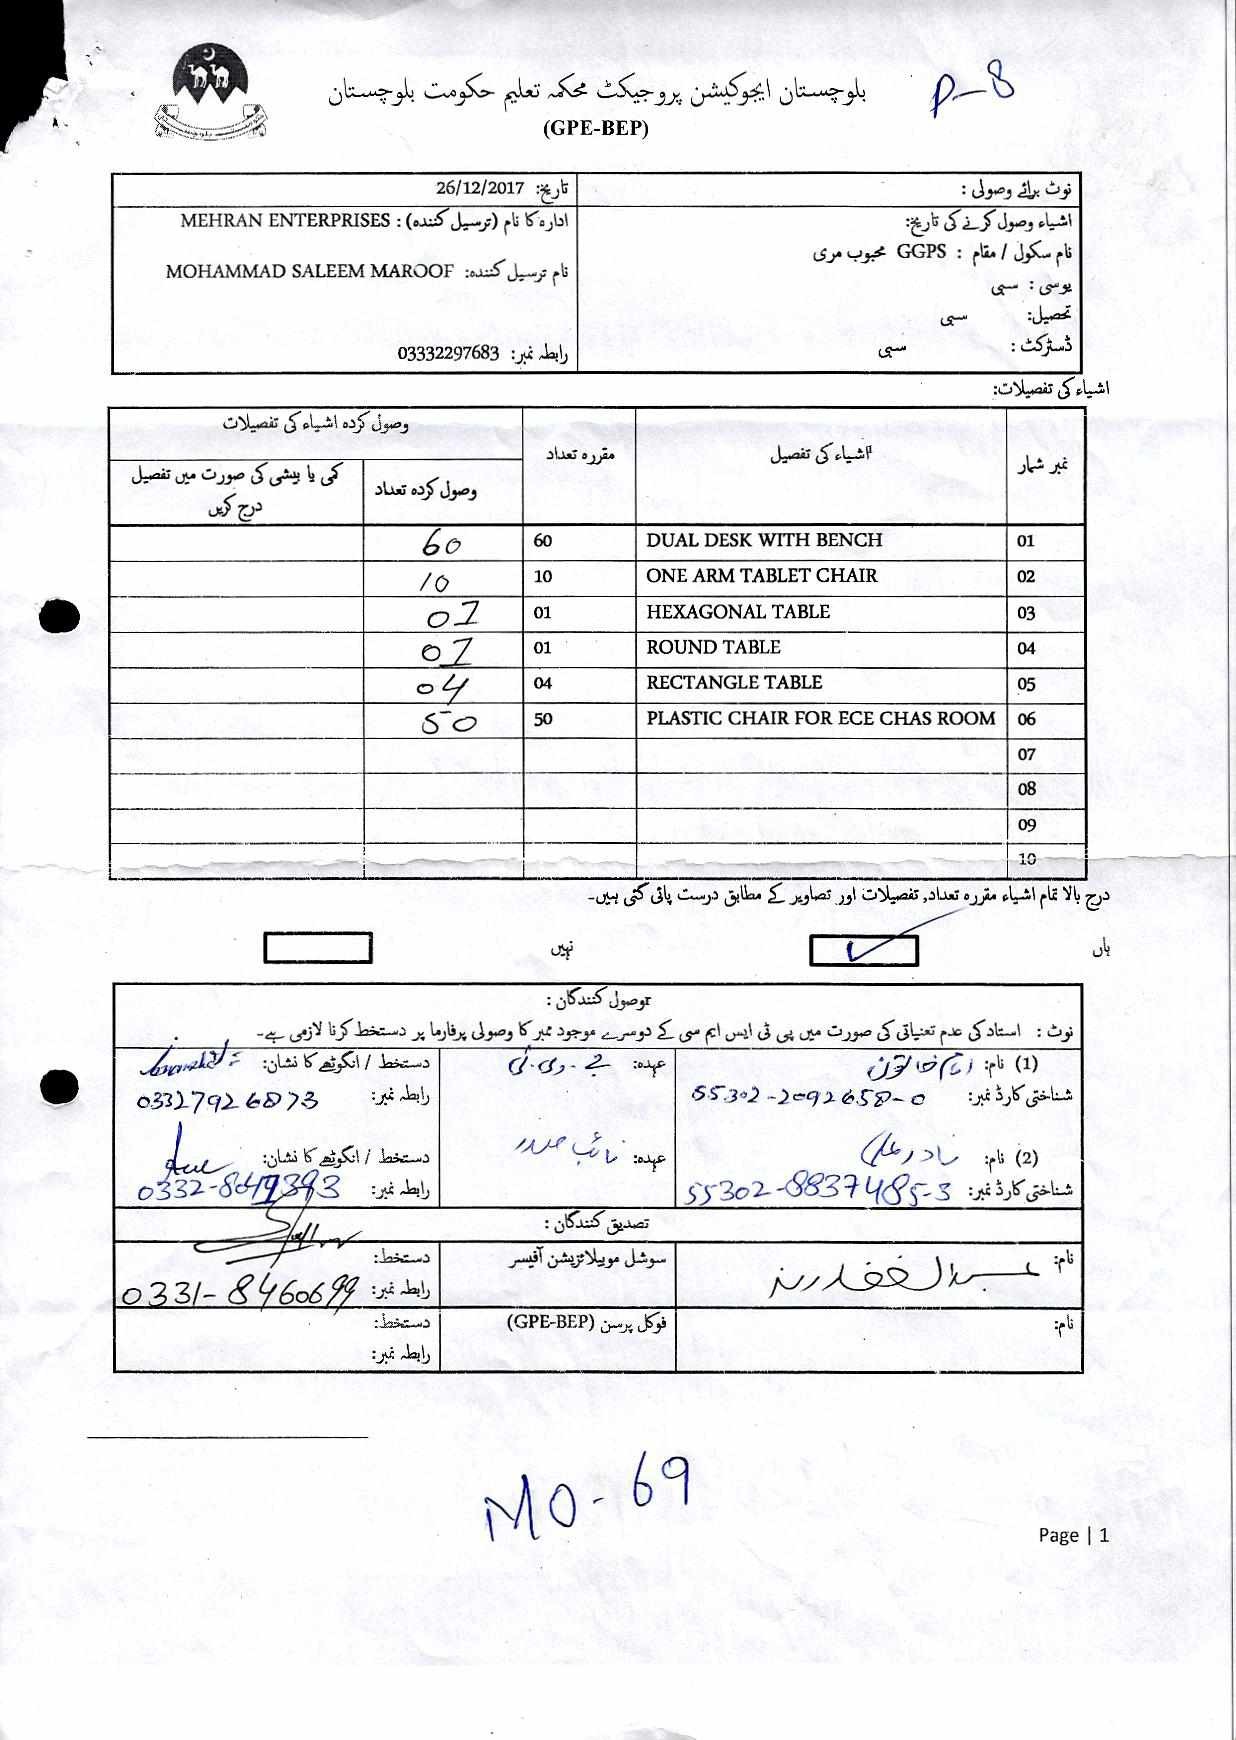 بلوچستان ایجوکیشن پروجیکٹ محکمہ تعلیم حکومت بلوچستان
P-8
(GPE-BEP)
نوٹ برائے وصولی :
تاریخ: 26/12/2017
اشیاء وصول کرنے کی تاریخ:
ادارہ کا نام (ترسیل کنندہ) : MEHRAN ENTERPRISES
نام سکول / مقام : GGPS محبوب مری
نام ترسیل کنندہ: MOHAMMAD SALEEM MAROOF
یوسی : سبی
تحصیل: سبی
ڈسٹرکٹ : سبی
رابطہ نمبر: 03332297683
اشیاء کی تفصیلات:
نمبر شمار اشیاء کی تفصیل مقررہ تعداد وصول کردہ اشیاء کی تفصیلات
وصول کردہ تعداد کمی یا بیشی کی صورت میں تفصیل درج کریں
01 DUAL DESK WITH BENCH 60 60
02 ONE ARM TABLET CHAIR 10 10
03 HEXAGONAL TABLE 01 01
04 ROUND TABLE 01 01
05 RECTANGLE TABLE 04 04
06 PLASTIC CHAIR FOR ECE CHAS ROOM 50 50
07
08
09
10
درج بالا تمام اشیاء مقررہ تعداد, تفصیلات اور تصاویر کے مطابق درست پائی گئی ہیں۔
ہاں نہیں
وصول کنندگان :
نوٹ : استاد کی عدم تعیناتی کی صورت میں پی ٹی ایس ایم سی کے دوسرے موجود ممبر کا وصولی پرفارما پر دستخط کرنا لازمی ہے۔
(1) نام: خاتون عہدہ: جے۔وی۔ٹی دستخط / انگوٹھے کا نشان:
شناختی کارڈ نمبر: 55302-2092658-0 رابطہ نمبر: 03327926873
(2) نام: نادر علی عہدہ: نائب صدر دستخط / انگوٹھے کا نشان:
شناختی کارڈ نمبر: 55302-8837485-3 رابطہ نمبر:
تصدیق کنندگان :
نام: عبدالغفار رند سوشل موبیلائزیشن آفیسر دستخط:
رابطہ نمبر: 0331-8460699
نام: فوکل پرسن (GPE-BEP) دستخط:
رابطہ نمبر:
MO-69
Page | 1